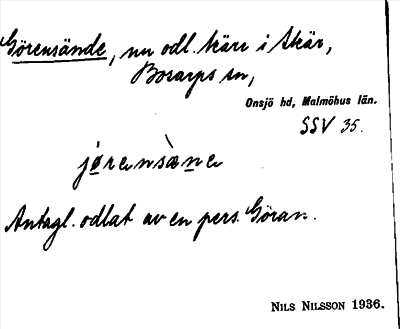 Görensände, nu odl. kärr i Skär,
Bosarps sn,
Onsjö hd, Malmöhus län.
SSV 35.
jørensàne
Antagl. odlat av en pers. Göran.
NILS NILSSON 1936.